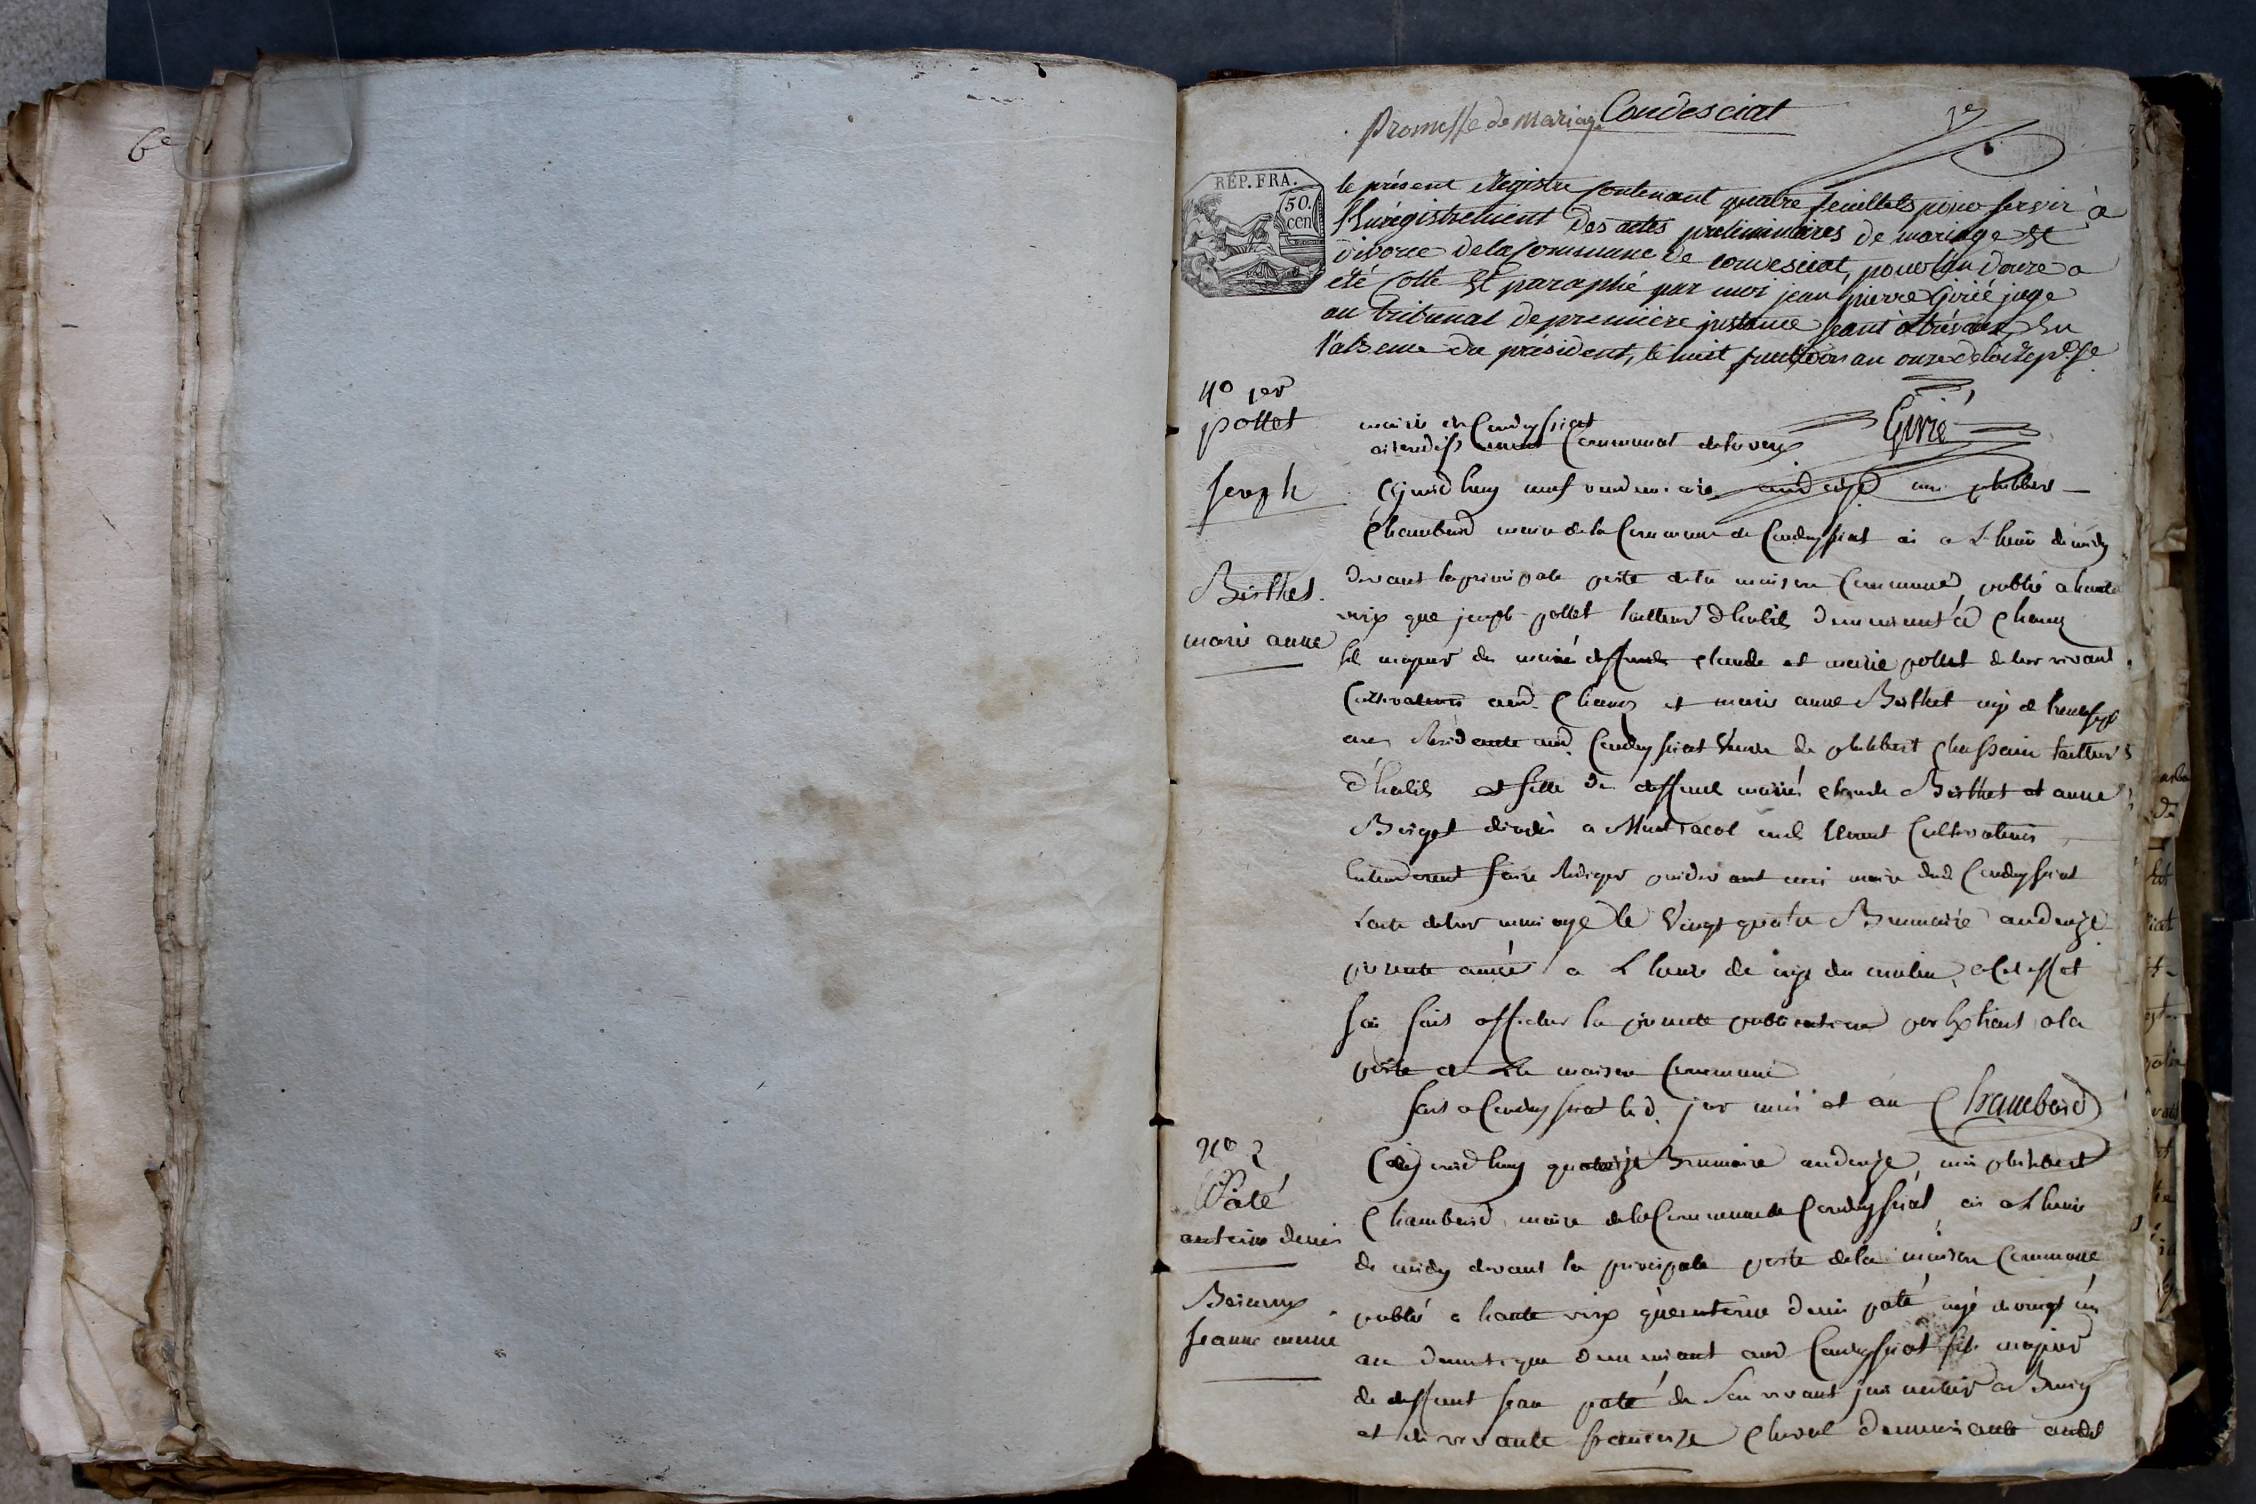 6e
Promesse de mariage Condesciat
1e
REP. FRA.
50.
cen
le présent Registre contenant quatre feuillets pour servir à
l'Enregistrement des actes preliminaires de mariage et
divorce de la Commune de condesciat, pour l'an douze a
été Cotté et paraphé par moi jean pierre Girié juge
au tribunal de première instance séant à trévoux, En
l'absence du président, le huit fructidor an onze de la Rep. fse
Girié
No 1er
pollet
Joseph
Berthet
marie anne
mairie de Condeyssiat
arrondissement Communal de trevoux
Cejourdhuy neuf vendemiaire an douze moi philibert
Chambard maire de la Commune de Condeyssiat ai a L'heure de midy
devant la principale porte de la maison Commune publié a haute
voix que joseph pollet tailleur d'habits demeurant à
fils majeur des mariés deffunts claude et marie pollet de leur vivant
Cultivateurs aud. et marie anne Berthet agé de
ans Résidante aud. Condeyssiat Veuve de philibert Chassain tailleur
d'habits et fille de deffunts mariés claude Berthet et anne
Berget décedés a Montracol Cultivateurs
entendirent faire Rediger pardevant moi maire dud Condeyssiat
L'acte de leur mariage le Vingt quatre Brumaire an douze
presente année a L'heure de onze du matin, a Cet effet
J'ai fait afficher la presente publication par Extrait a la
porte de La maison Commune
fait a Condeyssiat led. jour mois et an Chambard
No 2
Paté
antoine denis
jeanne marie
Cejourdhuy quatorze Brumaire an douze, moi philibert
Chambard, maire de la Commune de Condeyssiat, ai a L'heure
de midy devant la principale porte de la maison Commune
publié a haute voix qu'antoine denis paté agé de vingt un
an domestique demeurant aud Condeyssiat fils majeur
de deffunt jean paté de Son vivant
et de vivante francoise demeurante